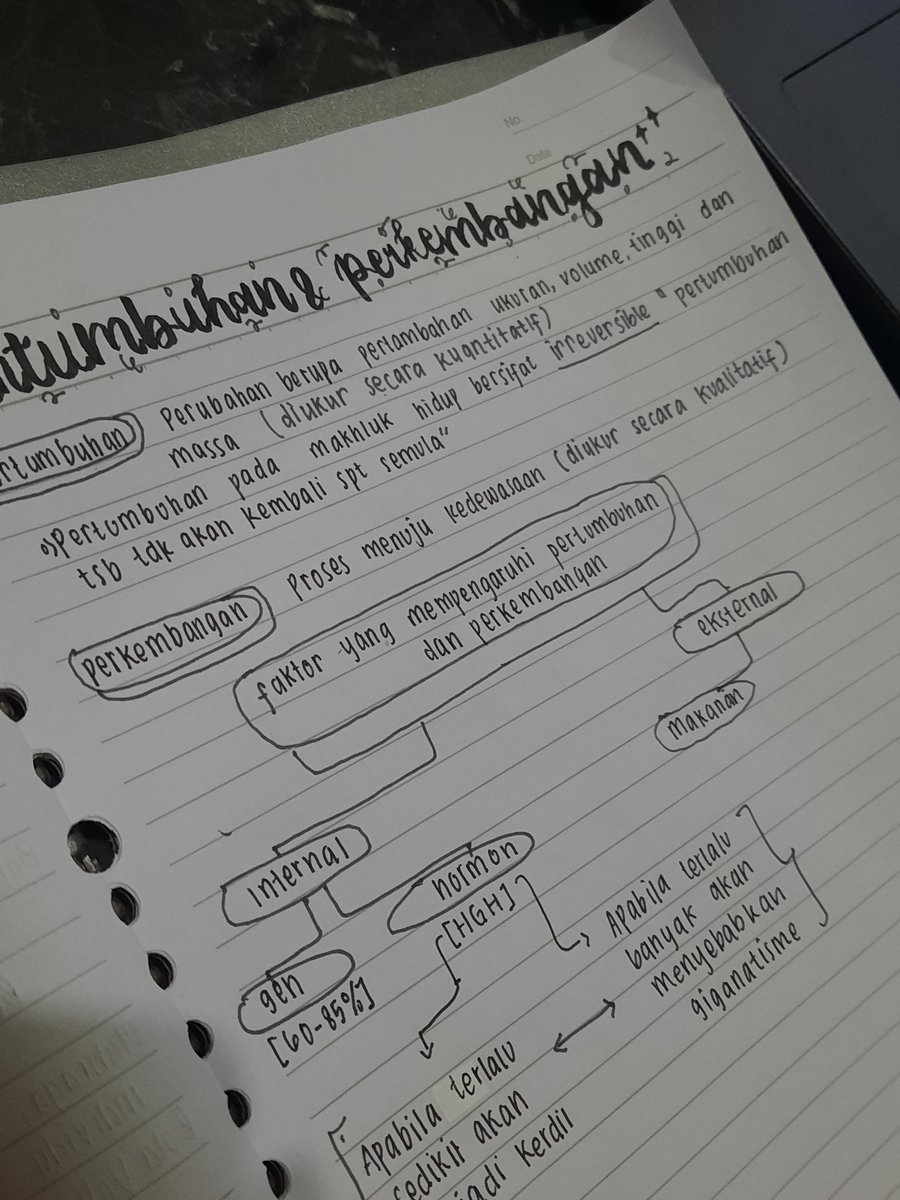 No.
Date
& perkembangan
Perubahan berupa pertambahan ukuran, volume, tinggi dan
massa (diukur secara kuantitatif)
Pertumbuhan pada makhluk hidup bersifat irreversible " pertumbuhan
tsb tdk akan kembali spt semula"
perkembangan Proses menuju kedewasaan (diukur secara kualitatif)
faktor yang mempengaruhi pertumbuhan
dan perkembangan
eksternal
makanan
Internal
hormon
[HGH]
gen
[60-85%]
Apabila terlalu
banyak akan
menyebabkan
giganatisme
Apabila terlalu
sedikit akan
kerdil